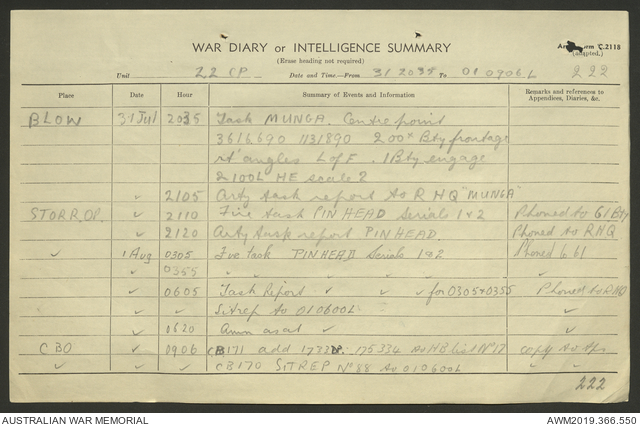 WAR DIARY or INTELLIGENCE SUMMARY
C.2118
(Erase heading not required)
(adapted.)
Unit 22 CP Date and Time—From 312035 To 010906L 222
Place Date Hour Summary of Events and Information Remarks and references to Appendices, Diaries, &c.
BLOW 31 Jul 2035 Task MUNGA. Centre point
3616690 1131890 200x Bty frontage
rt angles L of F. 1 Bty engage
2100L HE scale 2
✓ 2105 Arty task report to RHQ "MUNGA"
STORR, OP. ✓ 2110 Fire task PINHEAD Serials 1 & 2 Phoned to 61 Bty
✓ 2120 Arty task report PINHEAD Phoned to RHQ
✓ 1 Aug 0305 Fire task PINHEAD Serials 1 & 2 Phoned 61
✓ 0355 " " " " ✓
✓ 0605 Task Report ✓ ✓ for 0305 & 0355 Phoned to RHQ
✓ Sitrep to 010600L ✓
✓ 0620 Amn as at ✓ ✓
CBO ✓ 0906 CB171 add 175334 to HB list No 17 copy to
✓ ✓ ✓ CB170 SITREP No 88 to 010600L ✓
222
AUSTRALIAN WAR MEMORIAL AWM2019.366.550